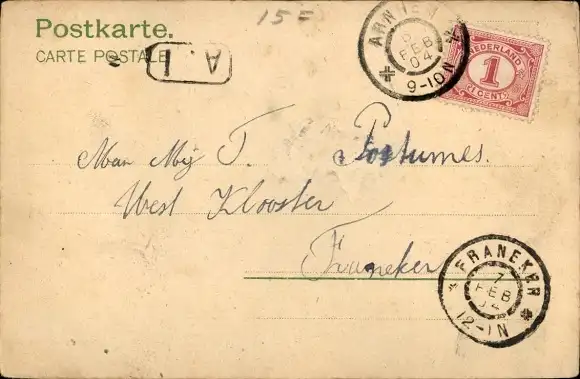 15=
Postkarte.
CARTE POSTALE
A.I
ARNHEM
6
FEB
04
9-10N
NEDERLAND
1
CENT
T. Postumes.
West Klooster
Franeker
FRANEKER
7
FEB
04
12-1N